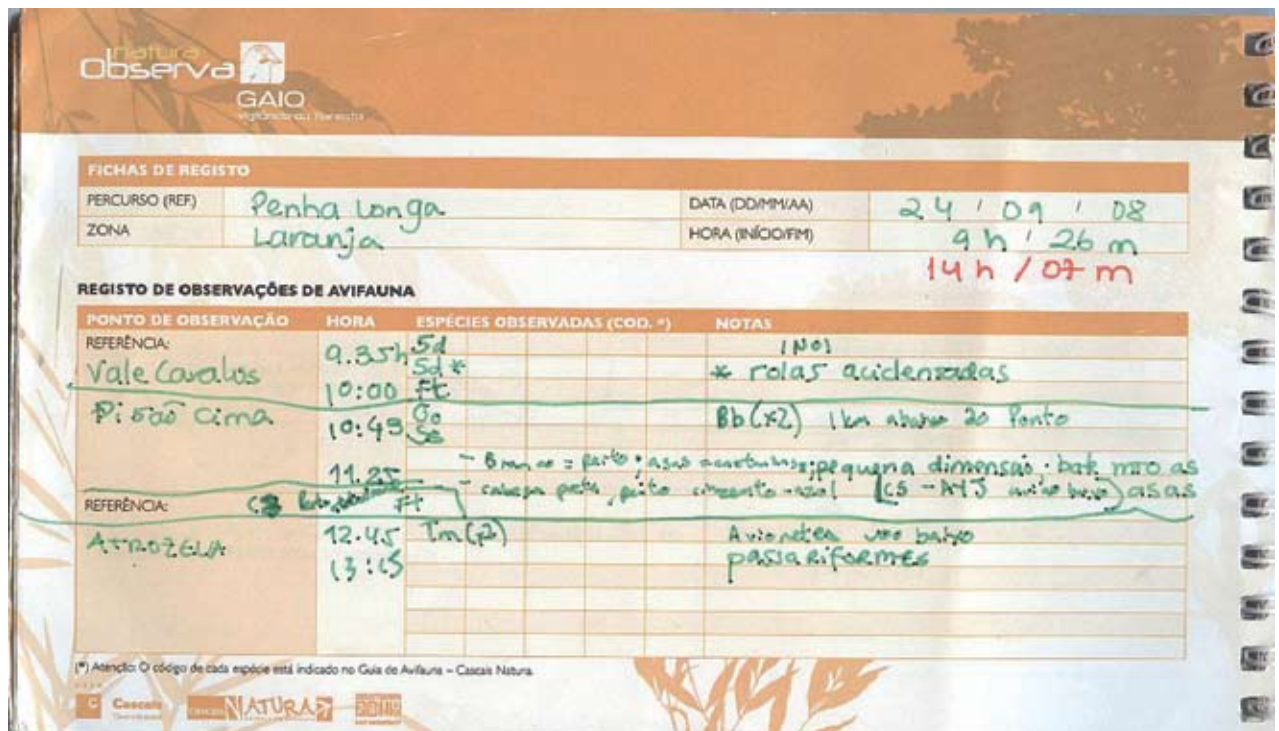 natura
Observa
GAIO
vigilância da floresta
FICHAS DE REGISTO
PERCURSO (REF.) Penha Longa DATA (DD/MM/AA) 24 / 09 / 08
ZONA Laranja HORA (INÍCIO/FIM) 9 h / 26 m
14 h / 07 m
REGISTO DE OBSERVAÇÕES DE AVIFAUNA
PONTO DE OBSERVAÇÃO HORA ESPÉCIES OBSERVADAS (COD. *) NOTAS
REFERÊNCIA: 9.35h Sd
Vale Cavalos Sd * * rolas acidentadas
10:00 Ft
Pisão Cima 10:49 Bb (x2) 1 km abaixo do Ponto
11.25 pequena dimensão
cabeça preta, peito cinzento-azul asas
REFERÊNCIA: Ft
ATROZELA 12.45 Tm (2) Avioneta voo baixo
13:15 passariformes
(*) Atenção: O código de cada espécie está indicado no Guia de Avifauna – Cascais Natura.
C Cascais NATURA